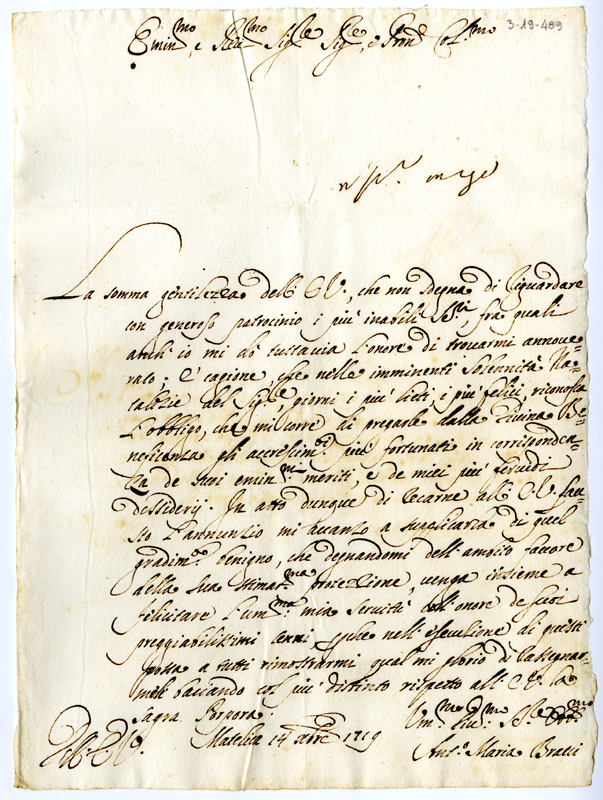 3-19-489
Emin:mo, e Rev:mo Sig:re Sig:re, e Pron Col:mo
La somma gentilezza dell' E.V., che non sdegna di riguardare
con generoso patrocinio i più inabili Se:ri, fra quali
anch' io mi dò tuttavia l'onore di trovarmi annove-
rato; è cagione, che nelle imminenti Solennità Na-
talizie del Sig:re, giorni i più lieti, i più felici, riconosca
l'obbligo, che mi corre di pregarle dalla Divina Be-
neficenza gli accrescim:ti più fortunati in corrisponden-
za de suoi emin:mi meriti, e de miei più fervidi
dessiderij. In atto dunque di recarne all' E.V. fau-
sto l'annunzio mi avanzo a supplicarla di quel
gradim:to benigno, che degnandomi dell' amplo favore
della sua stimat:ma protezzione, venga insieme a
felicitare l'um:ma mia servitù coll'onore de suoi
preggiabilissimi cenni, che nell' essecuzione di questi
possa a tutti rimostrarmi qual mi glorio di rassegnar-
mele baciando col più distinto rispetto all' E.V. la
Sagra Porpora.
Dell' E.V.
Matelica 14 Xbre 1719
Um:mo Dev:mo
Ant:o Maria Bracci